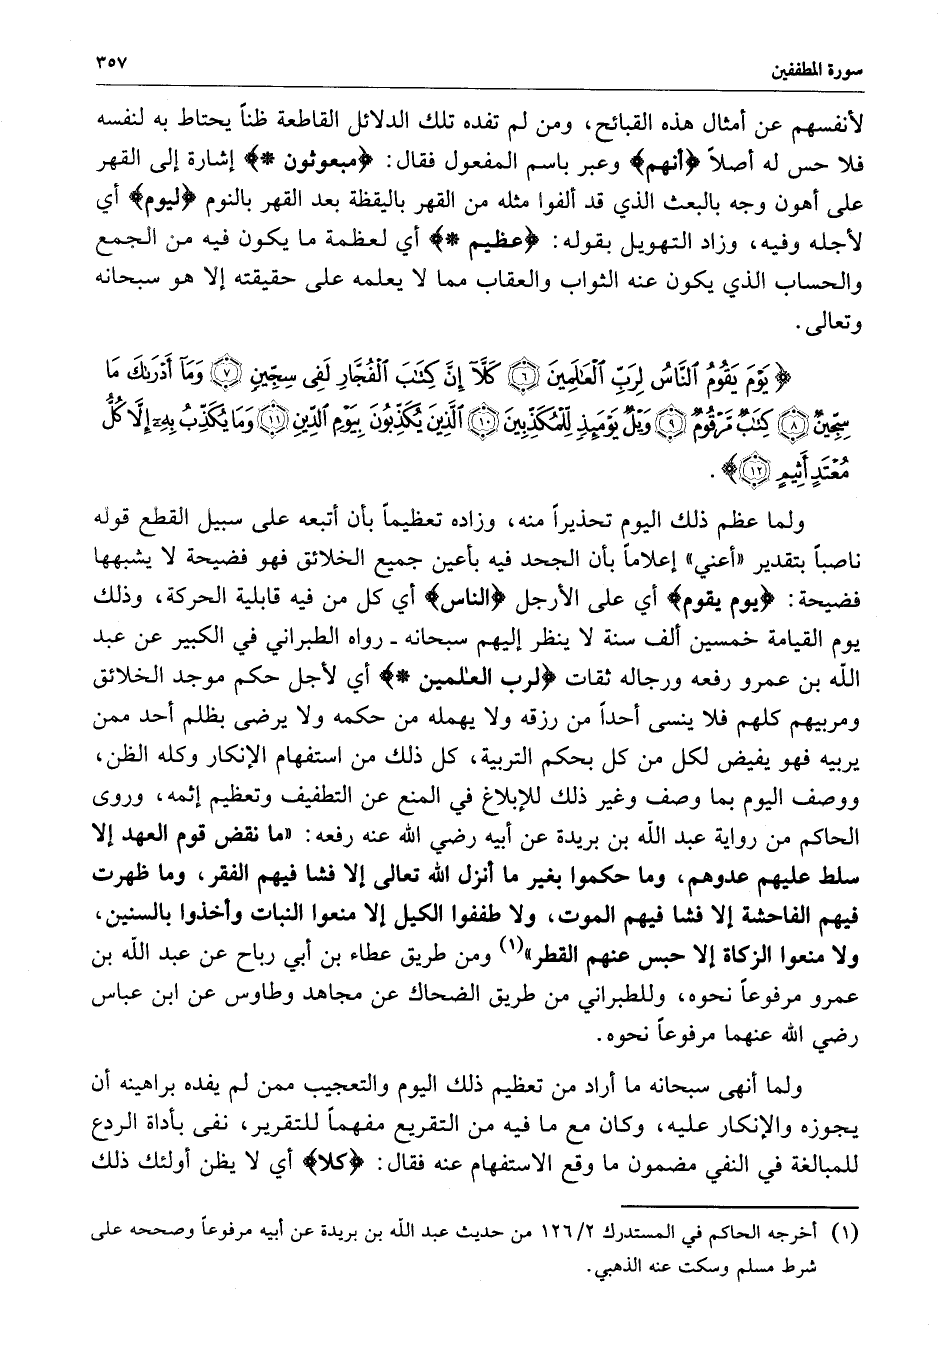 سورة المطففين
٣٥٧
لأنفسهم عن أمثال هذه القبائح، ومن لم تفده تلك الدلائل القاطعة ظناً يحتاط به لنفسه
فلا حس له أصلاً ﴿أنهم﴾ وعبر باسم المفعول فقال: ﴿مبعوثون *﴾ إشارة إلى القهر
على أهون وجه بالبعث الذي قد ألفوا مثله من القهر باليقظة بعد القهر بالنوم ﴿ليوم﴾ أي
لأجله وفيه، وزاد التهويل بقوله: ﴿عظيم *﴾ أي لعظمة ما يكون فيه من الجمع
والحساب الذي يكون عنه الثواب والعقاب مما لا يعلمه على حقيقته إلا هو سبحانه
وتعالى.
﴿يَوْمَ يَقُومُ ٱلنَّاسُ لِرَبِّ ٱلْعَٰلَمِينَ ۝٦ كَلَّآ إِنَّ كِتَٰبَ ٱلْفُجَّارِ لَفِى سِجِّينٍ ۝٧ وَمَآ أَدْرَىٰكَ مَا
سِجِّينٌ ۝٨ كِتَٰبٌ مَّرْقُومٌ ۝٩ وَيْلٌ يَوْمَئِذٍ لِّلْمُكَذِّبِينَ ۝١٠ ٱلَّذِينَ يُكَذِّبُونَ بِيَوْمِ ٱلدِّينِ ۝١١ وَمَا يُكَذِّبُ بِهِۦٓ إِلَّا كُلُّ
مُعْتَدٍ أَثِيمٍ ۝١٢﴾.
ولما عظم ذلك اليوم تحذيراً منه، وزاده تعظيماً بأن أتبعه على سبيل القطع قوله
ناصباً بتقدير «أعني» إعلاماً بأن الجحد فيه بأعين جميع الخلائق فهو فضيحة لا يشبهها
فضيحة: ﴿يوم يقوم﴾ أي على الأرجل ﴿الناس﴾ أي كل من فيه قابلية الحركة، وذلك
يوم القيامة خمسين ألف سنة لا ينظر إليهم سبحانه ـ رواه الطبراني في الكبير عن عبد
الله بن عمرو رفعه ورجاله ثقات ﴿لرب العٰلمين *﴾ أي لأجل حكم موجد الخلائق
ومربيهم كلهم فلا ينسى أحداً من رزقه ولا يهمله من حكمه ولا يرضى بظلم أحد ممن
يربيه فهو يفيض لكل من كل بحكم التربية، كل ذلك من استفهام الإنكار وكله الظن،
ووصف اليوم بما وصف وغير ذلك للإبلاغ في المنع عن التطفيف وتعظيم إثمه، وروى
الحاكم من رواية عبد الله بن بريدة عن أبيه رضي الله عنه رفعه: «ما نقض قوم العهد إلا
سلط عليهم عدوهم، وما حكموا بغير ما أنزل الله تعالى إلا فشا فيهم الفقر، وما ظهرت
فيهم الفاحشة إلا فشا فيهم الموت، ولا طففوا الكيل إلا منعوا النبات وأخذوا بالسنين،
ولا منعوا الزكاة إلا حبس عنهم القطر»(١) ومن طريق عطاء بن أبي رباح عن عبد الله بن
عمرو مرفوعاً نحوه، وللطبراني من طريق الضحاك عن مجاهد وطاوس عن ابن عباس
رضي الله عنهما مرفوعاً نحوه.
ولما أنهى سبحانه ما أراد من تعظيم ذلك اليوم والتعجيب ممن لم يفده براهينه أن
يجوزه والإنكار عليه، وكان مع ما فيه من التقريع مفهماً للتقرير، نفى بأداة الردع
للمبالغة في النفي مضمون ما وقع الاستفهام عنه فقال: ﴿كلا﴾ أي لا يظن أولئك ذلك
(١) أخرجه الحاكم في المستدرك ١٢٦/٢ من حديث عبد الله بن بريدة عن أبيه مرفوعاً وصححه على
شرط مسلم وسكت عنه الذهبي.